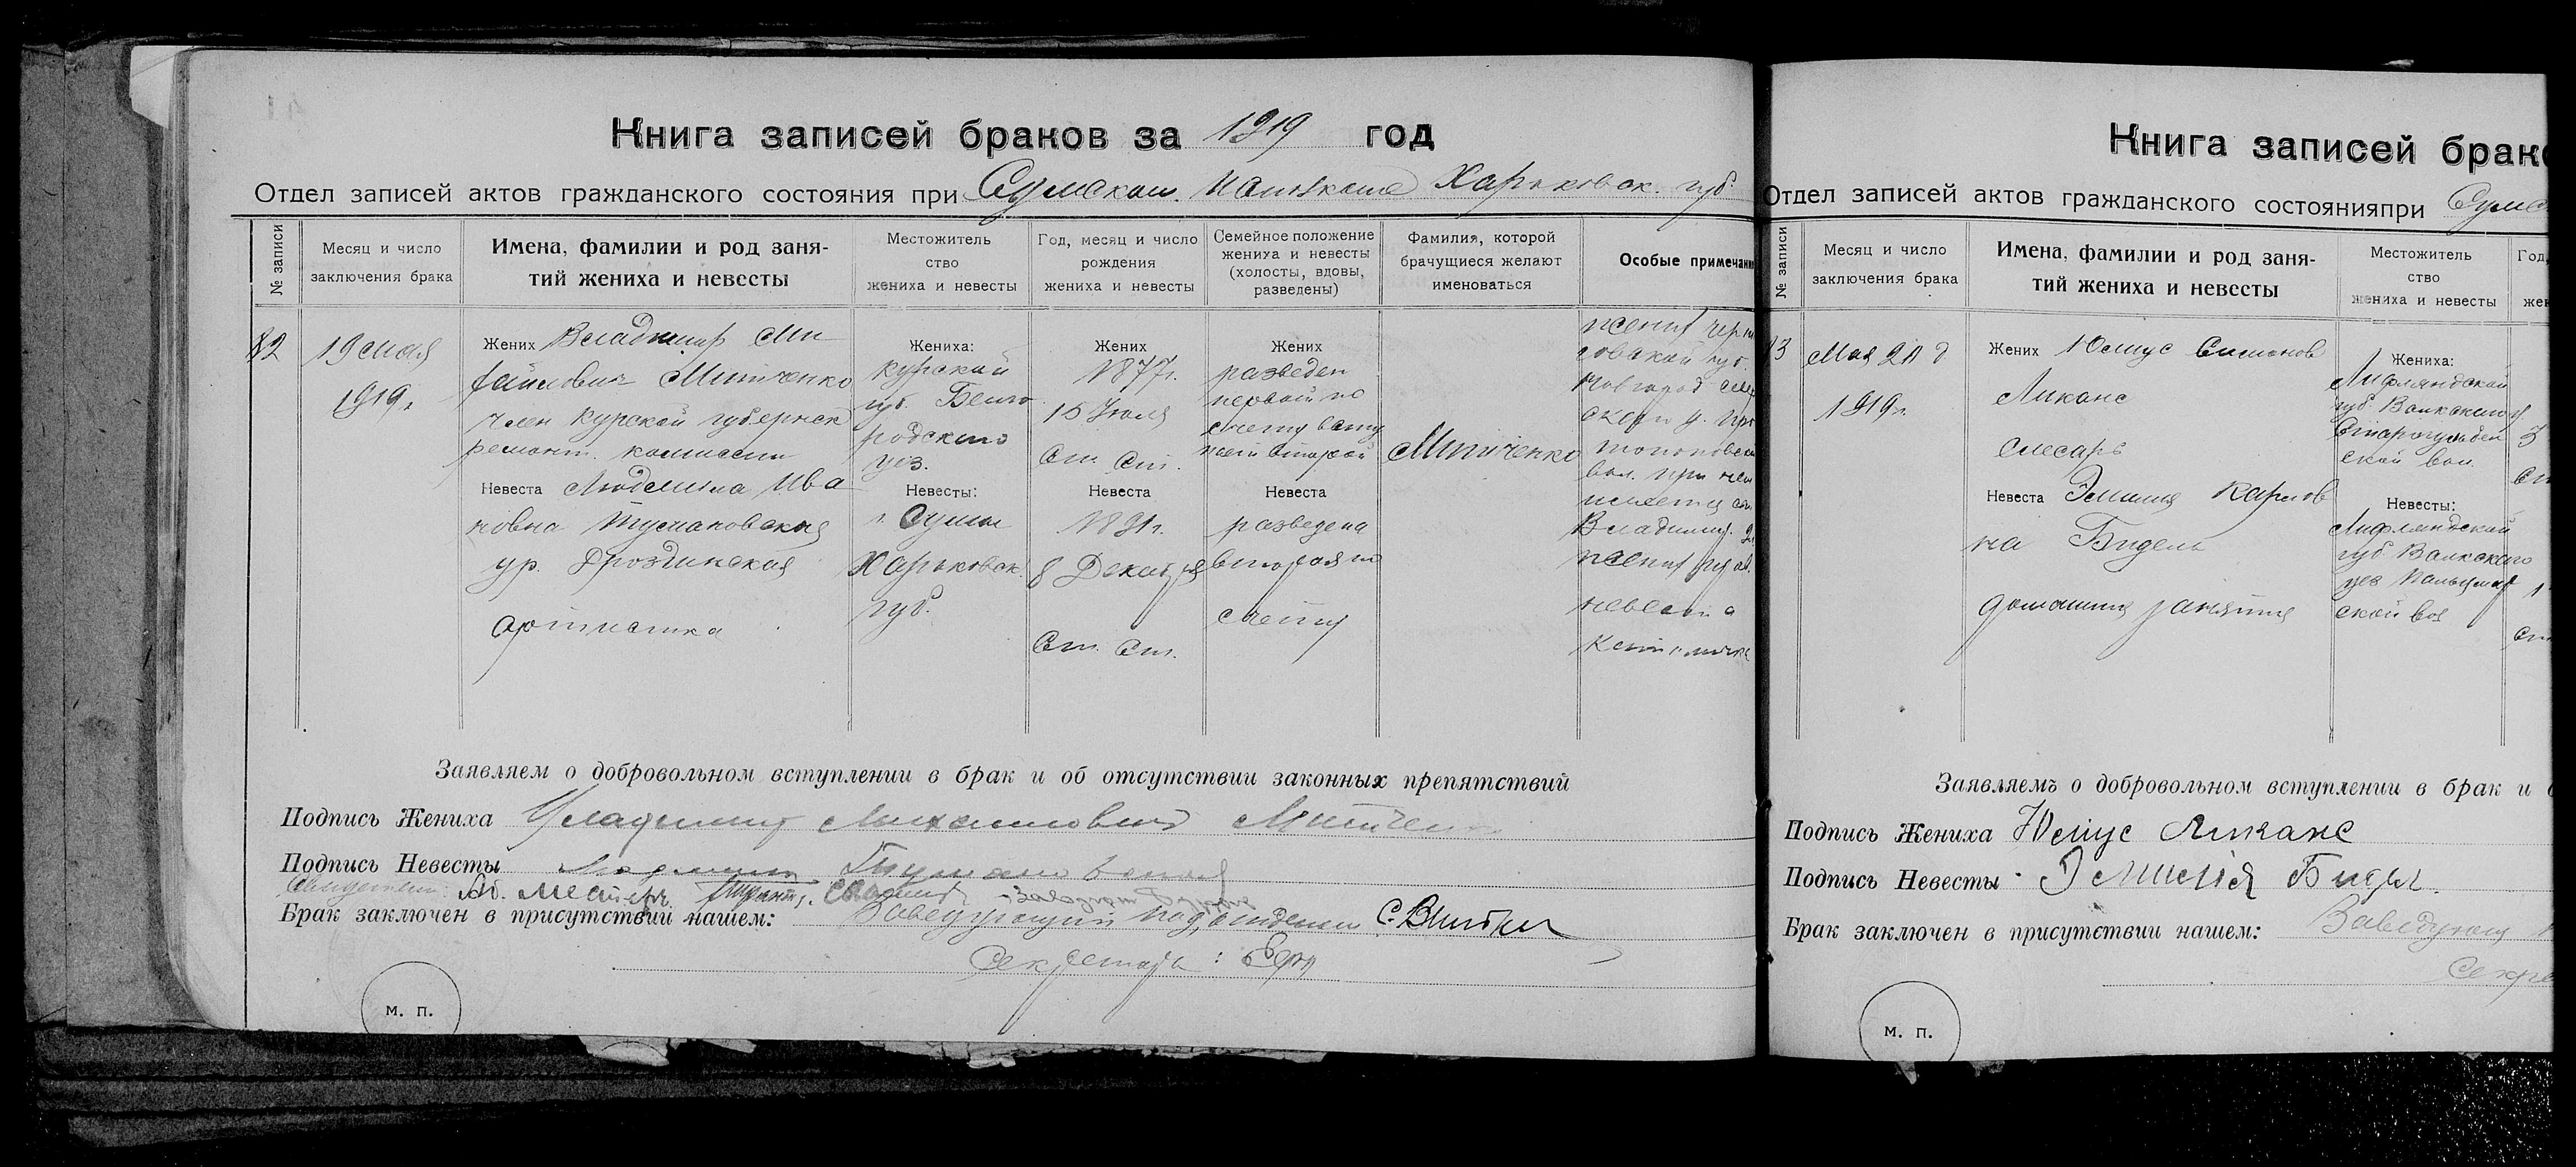 Книга записей браков за 1919 год
Отдел записей актов гражданского состояния при Сумском Харьковск. губ.
№ записи
Месяц и число
заключения брака
Имена, фамилии и род заня-
тий жениха и невесты
Местожитель
ство
жениха и невесты
Год, месяц и число
рождения
жениха и невесты
Семейное положение
жениха и невесты
(холосты, вдовы,
разведены)
Фамилия, которой
брачущиеся желают
именоваться
Особые примечани
19 мая
1919 г.
Жених Владимир Ми
хайлович Митченко
член Курской губернск
ремонт. комиссии
Невеста Людмила Ива
новна Тумановская
ур. Дроздинская
артистка
Жениха:
Курской
губ. Белго
родского
уез.
Невесты:
г. Сумы
Харьковск.
губ.
Жених
1877 г.
15 Июля
Ст. Ст.
Невеста
1891 г.
8 Декабря
Ст. Ст.
Жених
разведен
первой по
счету
второй
Невеста
разведена
вторая по
счету
Митченко
жених черни
говской губ.
Новгород
вол. при нем
имеется
Владимир
жених
невеста
католичка
Заявляем о добровольном вступлении в брак и об отсутствии законных препятствий
Подпись Жениха Владимир Михайлович Митченко
Подпись Невесты Людмила
Свидетели:
Брак заключен в присутствии нашем: Заведующий подотделом
Секретарь:
м. п.
Книга записей брако
Отдел записей актов гражданского состоянияпри Сумс
№ записи
Месяц и число
заключения брака
Имена, фамилии и род заня-
тий жениха и невесты
Местожитель
ство
жениха и невесты
Год,
жен
13
Мая 20 д
1919 г.
Жених Юлиус Симонов
Ликанс
слесарь
Невеста Эмилия Карлов
на Бидель
домашния занятия
Жениха:
Лифляндской
губ. Валкского у
ской вол.
Невесты:
Лифляндской
губ Валкского
уез
ской вол
Заявляемъ о добровольном вступлении в брак и о
Подпись Жениха Юлиус Ликанс
Подпись Невесты Эмилія
Брак заключен в присутствии нашем: Заведующ
Секре
м. п.